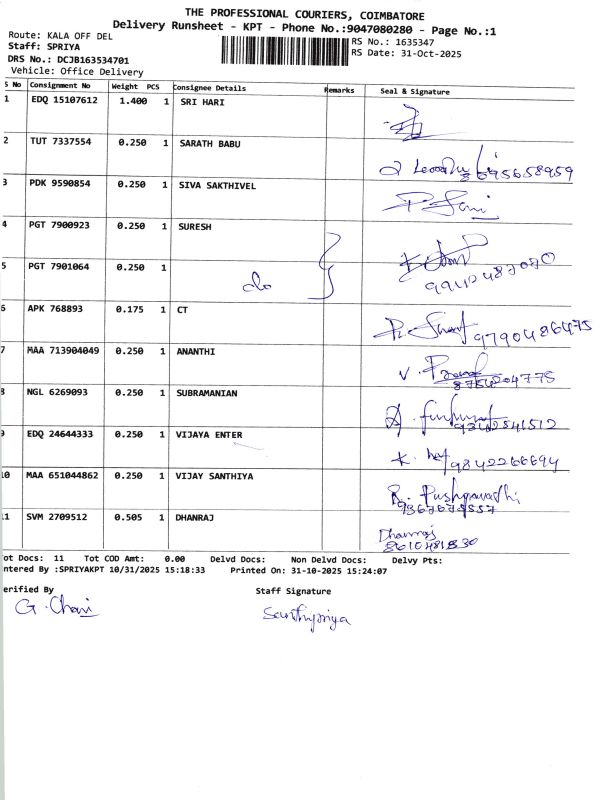 THE PROFESSIONAL COURIERS, COIMBATORE
Delivery Runsheet - KPT - Phone No.:9047080280 - Page No.:1
Route: KALA OFF DEL
RS No.: 1635347
Staff: SPRIYA
RS Date: 31-Oct-2025
DRS No.: DCJB163534701
Vehicle: Office Delivery
S No Consignment No Weight PCS Consignee Details Remarks Seal & Signature
1 EDQ 15107612 1.400 1 SRI HARI
2 TUT 7337554 0.250 1 SARATH BABU
3 PDK 9590854 0.250 1 SIVA SAKTHIVEL
4 PGT 7900923 0.250 1 SURESH
5 PGT 7901064 0.250 1 do
9942487070
6 APK 768893 0.175 1 CT
9790486475
7 MAA 713904049 0.250 1 ANANTHI V.
8754204775
8 NGL 6269093 0.250 1 SUBRAMANIAN
9342841512
9 EDQ 24644333 0.250 1 VIJAYA ENTER K.
9842266694
10 MAA 651044862 0.250 1 VIJAY SANTHIYA
11 SVM 2709512 0.505 1 DHANRAJ Dhanraj
ot Docs: 11 Tot COD Amt: 0.00 Delvd Docs: Non Delvd Docs: Delvy Pts:
ntered By :SPRIYAKPT 10/31/2025 15:18:33 Printed On: 31-10-2025 15:24:07
erified By Staff Signature
G. Chari Santhipriya